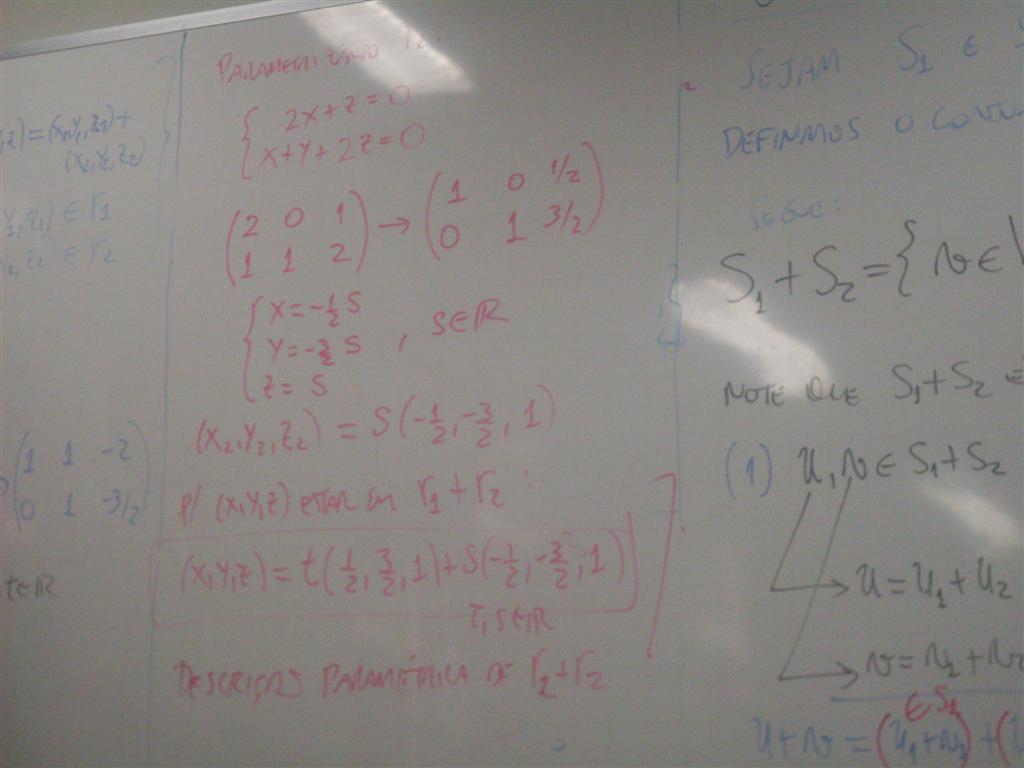 ,z) = (x1,y1,z1) +
(x2,y2,z2)
,z1) ∈ r1
,z2) ∈ r2
(1 1 -2
0 1 -3/2)
t∈R
PARAMETRIZANDO r2:
{ 2x+z=0
x+y+2z=0
(2 0 1
1 1 2) → (1 0 1/2
0 1 3/2)
{ x=-1/2 s
y=-3/2 s , s∈R
z= s
(x2,y2,z2) = s(-1/2,-3/2,1)
p/ (x,y,z) ESTAR EM r1+r2:
(x,y,z) = t(1/2,3/2,1)+s(-1/2,-3/2,1)
t,s∈R
DESCRIÇÃO PARAMÉTRICA DE r1+r2
SEJAM S1 E
DEFINIMOS O CONJU
SEGUE:
S1+S2={ v∈
NOTE QUE S1+S2 É
(1) u,v ∈ S1+S2
u=u1+u2
v=v1+v2
∈S1
u+v = (u1+v1)+(